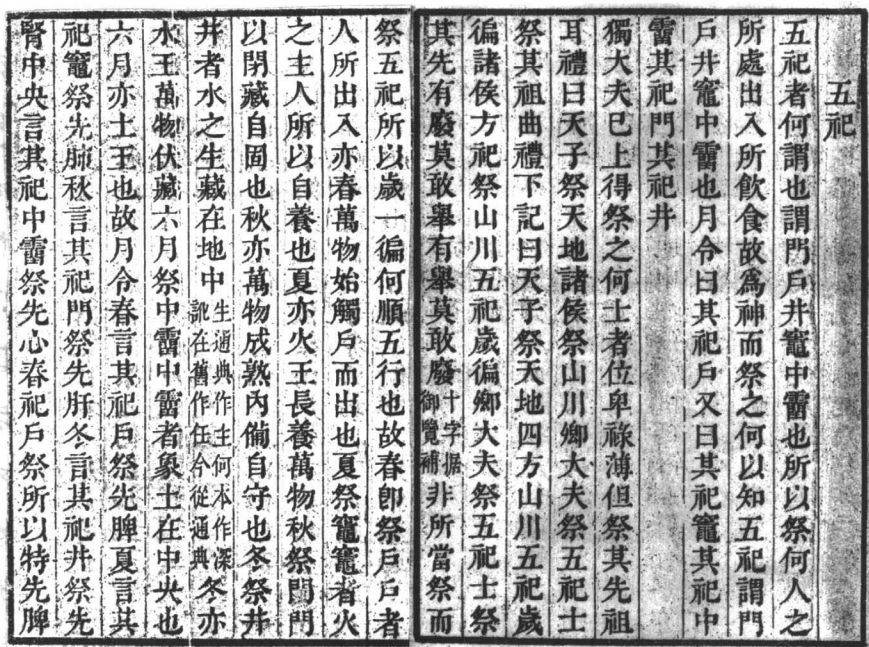 五祀
五祀者何謂也謂門戶井竈中霤也所以祭何人之
所處出入所飲食故爲神而祭之何以知五祀謂門
戶井竈中霤也月令曰其祀戶又曰其祀竈其祀中
霤其祀門其祀井
獨大夫已上得祭之何士者位卑祿薄但祭其先祖
耳禮曰天子祭天地諸侯祭山川卿大夫祭五祀士
祭其祖曲禮下記曰天子祭天地四方山川五祀歲
徧諸侯方祀祭山川五祀歲徧卿大夫祭五祀士祭
其先有廢莫敢舉有舉莫敢廢十字据御覽補非所當祭而
祭五祀所以歲一徧何順五行也故春卽祭戶戶者
人所出入亦春萬物始觸戶而出也夏祭竈竈者火
之主人所以自養也夏亦火王長養萬物秋祭門門
以閉藏自固也秋亦萬物成熟內備自守也冬祭井
井者水之生藏在地中生通典作主何本作深訛在舊作任今從通典冬亦
水王萬物伏藏六月祭中霤中霤者象土在中央也
六月亦土王也故月令春言其祀戶祭先脾夏言其
祀竈祭先肺秋言其祀門祭先肝冬言其祀井祭先
腎中央言其祀中霤祭先心春祀戶祭所以特先脾